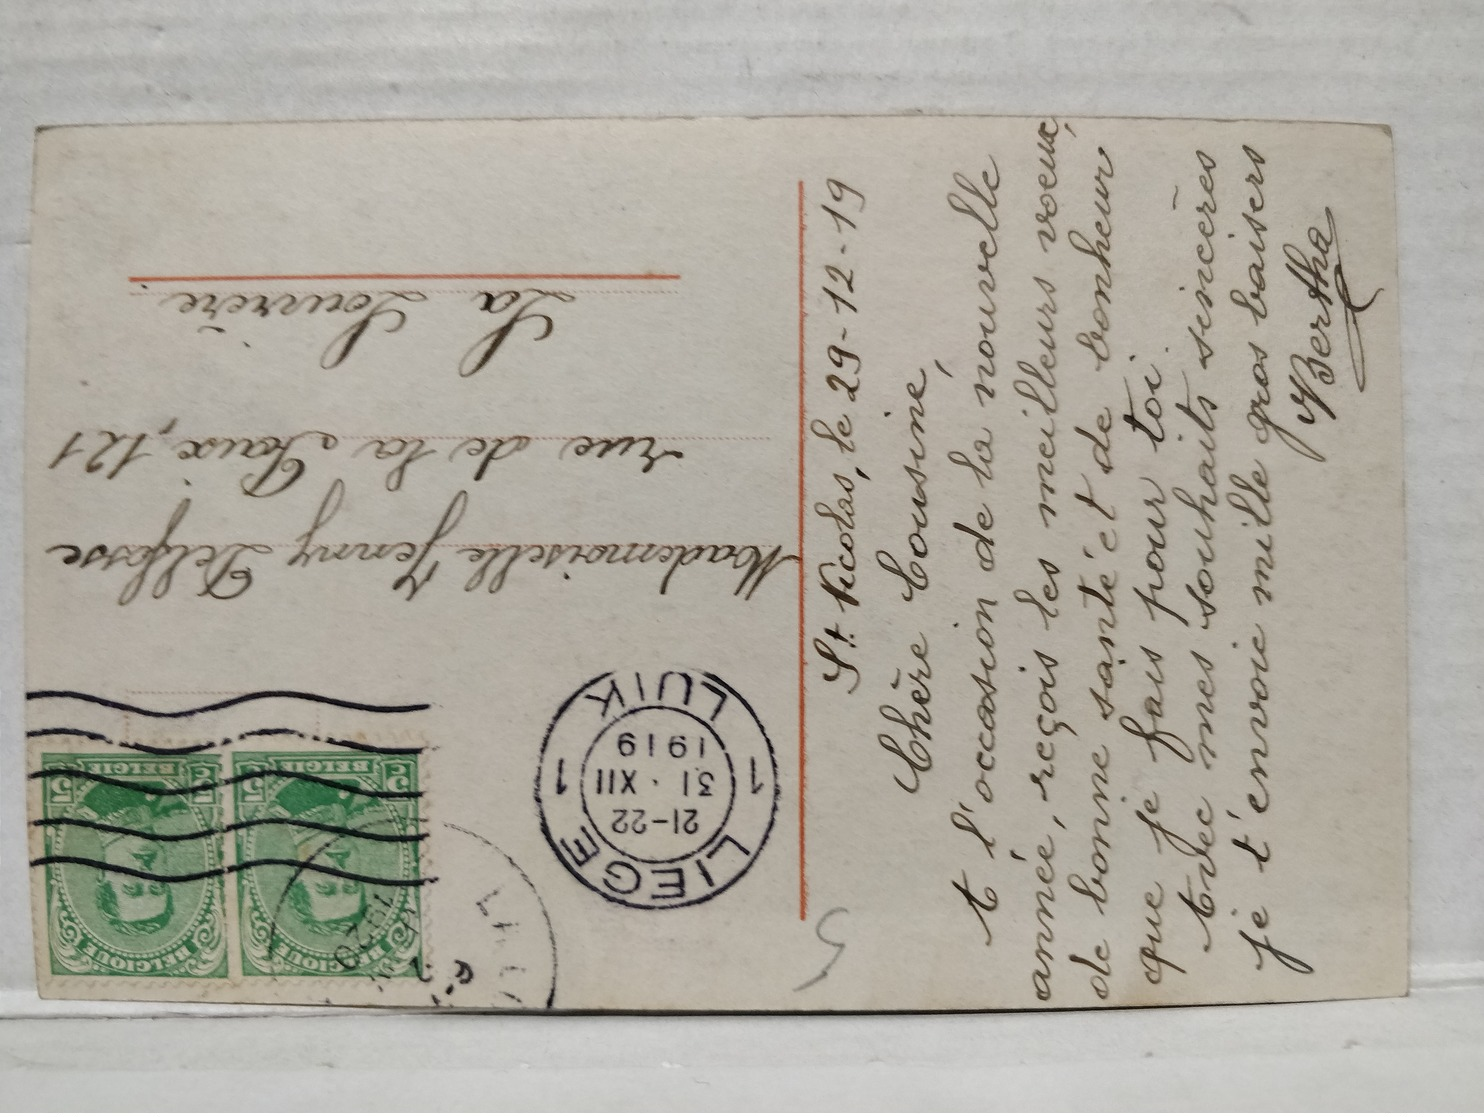 St. Nicolas, le 29-12-19
Chère Cousine,
A l'occasion de la nouvelle
année, reçois les meilleurs voeux,
de bonne santé et de bonheur
que je fais pour toi.
Avec mes souhaits sincères
je t'envoie mille gros baisers
Bertha
Mademoiselle Jenny Delfosse
rue de la Paix, 121
La Louvière
LIEGE 1 LUIK 1
21-22
31 · XII
1919
BELGIQUE BELGIQUE
5 5 5 5
BELGIE BELGIE
1920
5